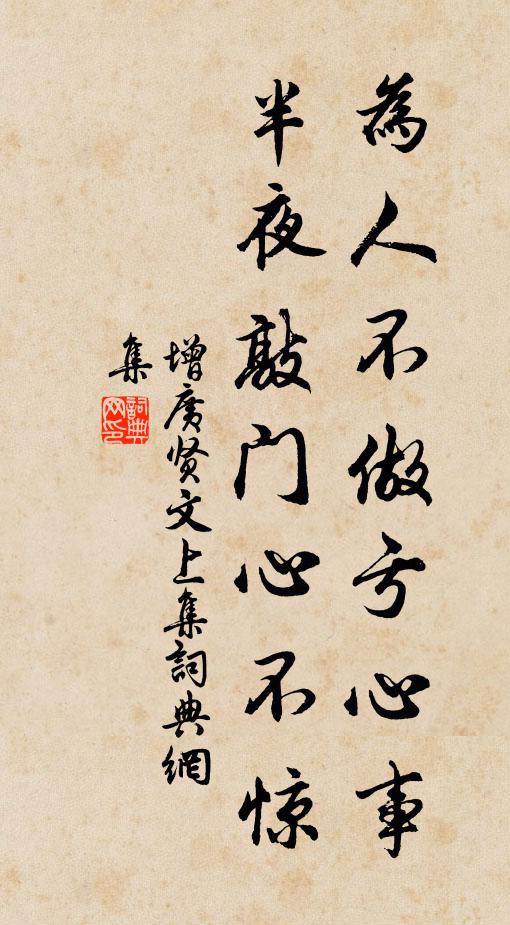 為人不做亏心事
半夜敲门心不惊
增广贤文上集詞典網
集
詞典网印